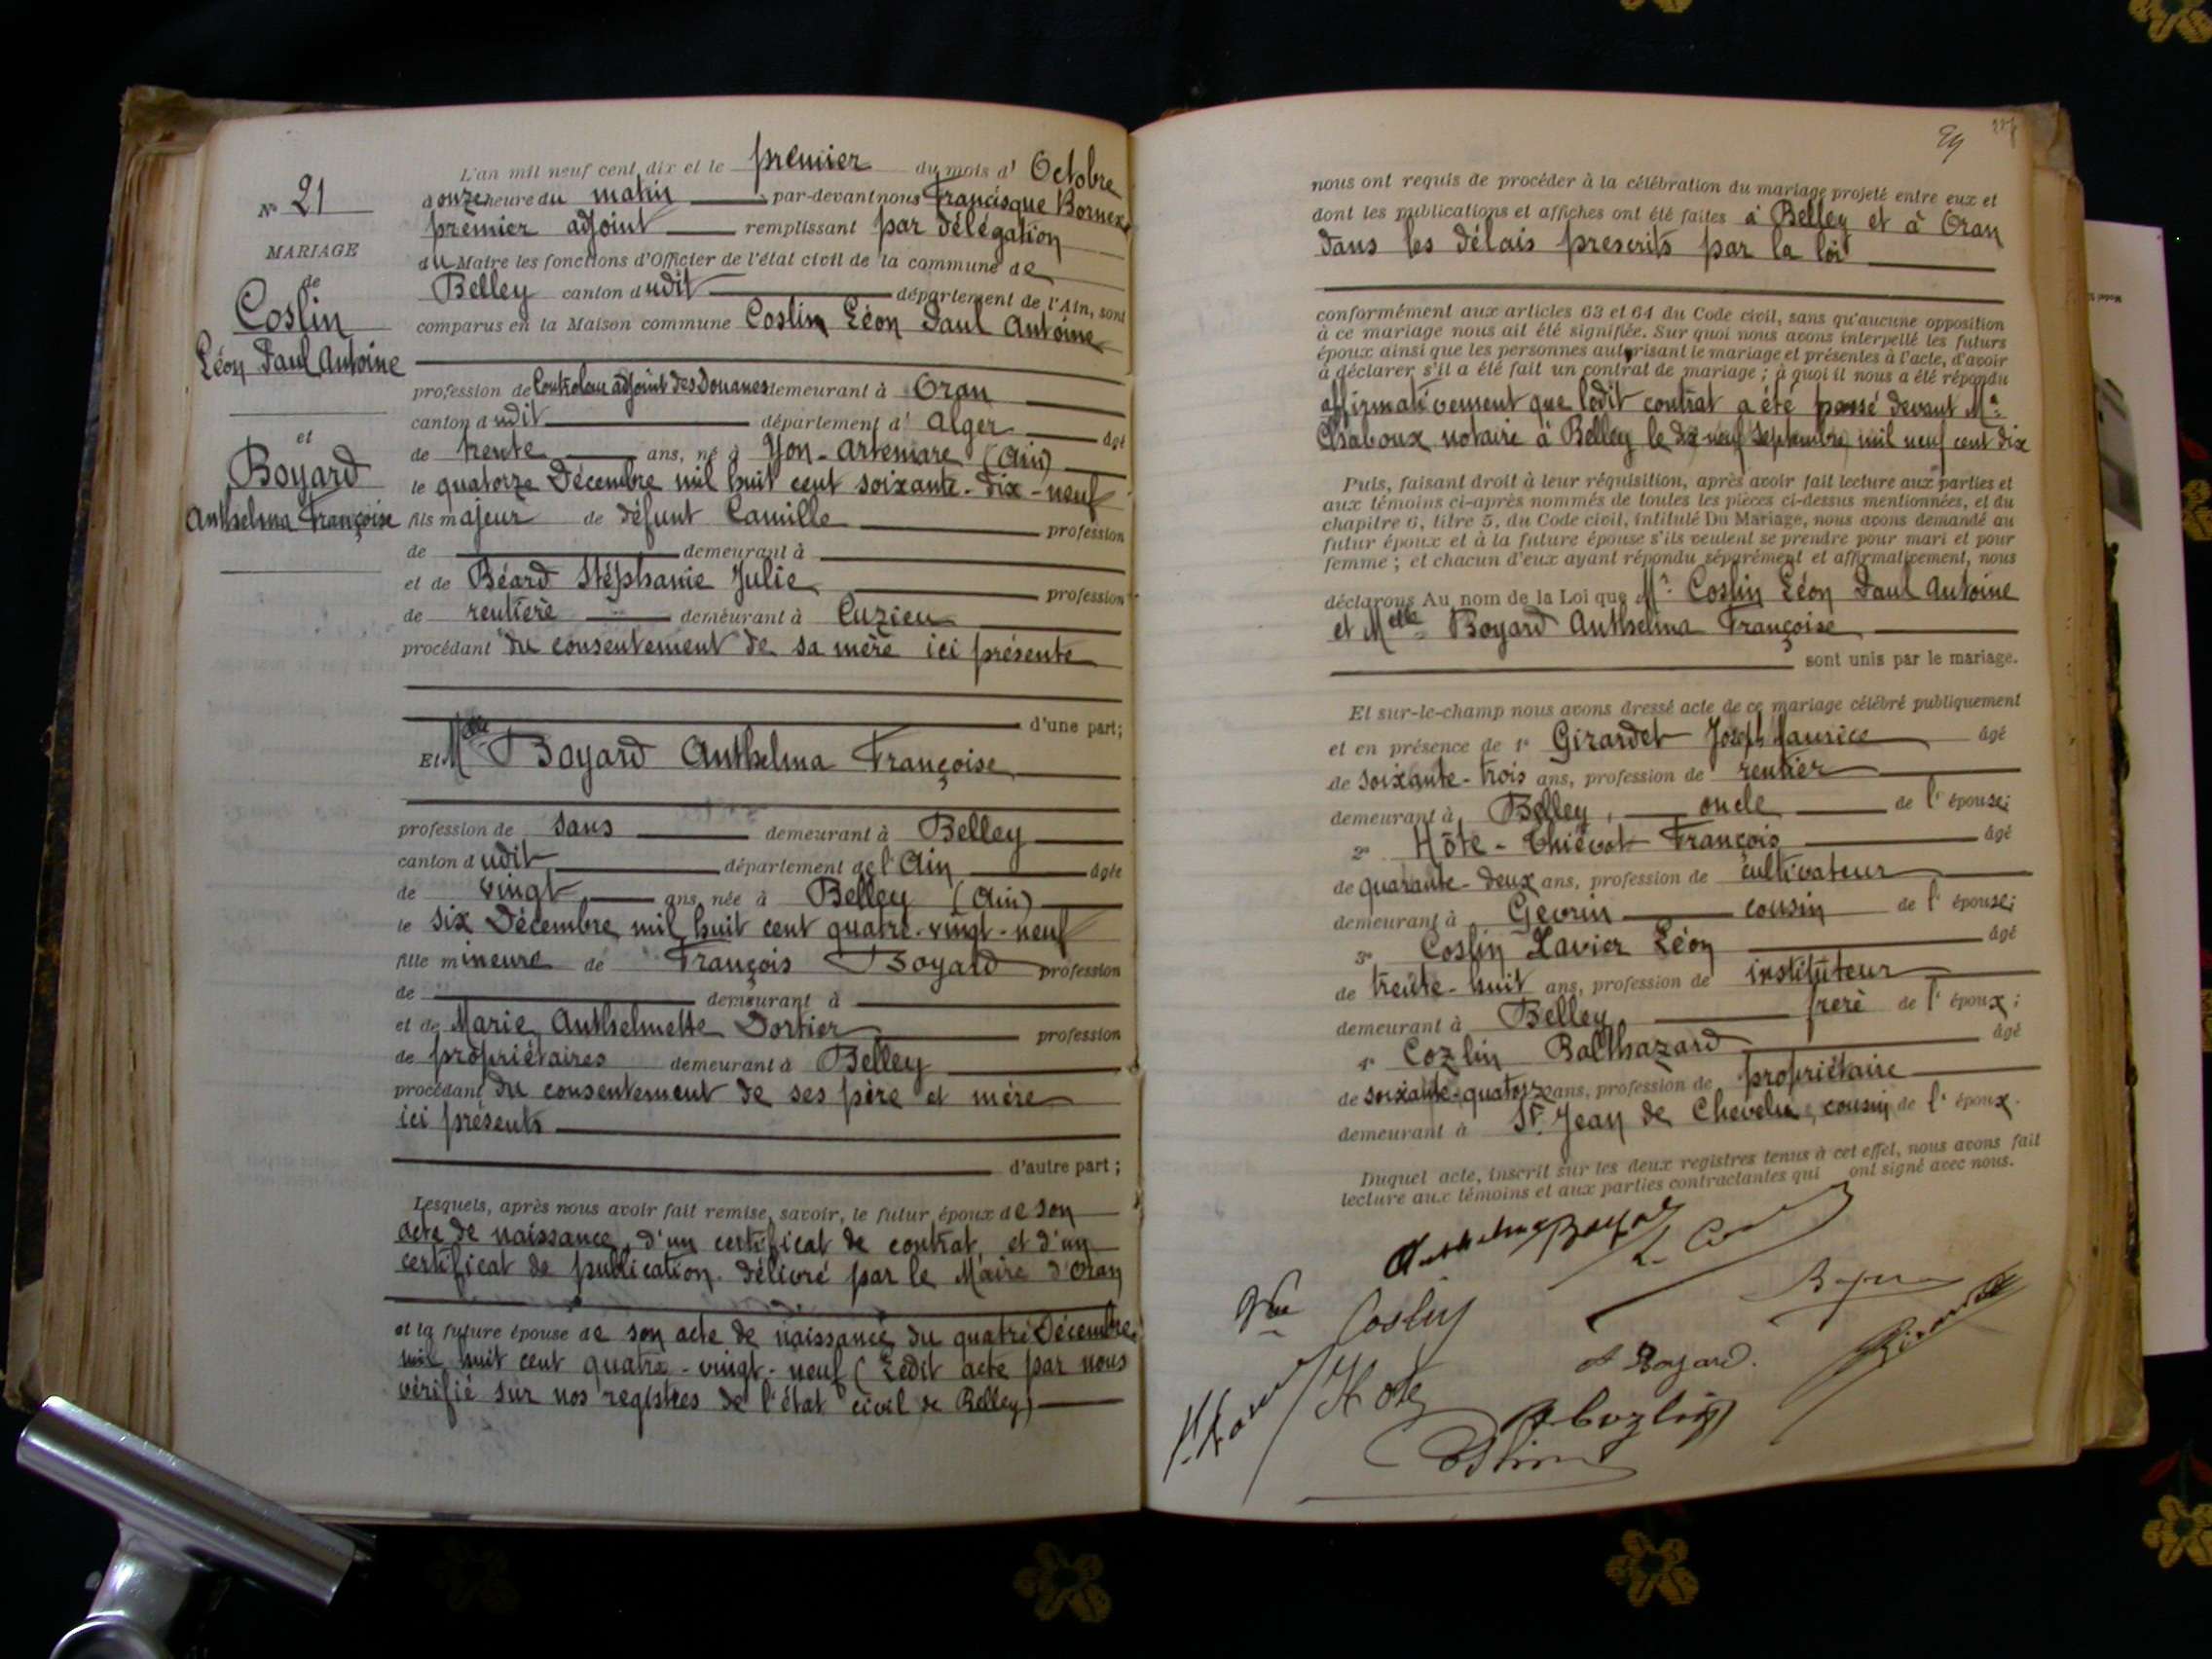 N° 21
MARIAGE
de
Coslin
Léon Paul Antoine
et
Boyard
Anthelma Françoise
L'an mil neuf cent dix et le premier du mois d' Octobre
à onze heure du matin par-devant nous Francisque Bornex
premier adjoint remplissant par délégation
du Maire les fonctions d'Officier de l'état civil de la commune de
Belley canton dudit département de l'Ain, sont
comparus en la Maison commune Coslin Léon Paul Antoine
profession de Controleur adjoint des Douanes demeurant à Oran
canton dudit département d' Alger âgé
de trente ans, né à Yon-Artemare (Ain)
le quatorze Décembre mil huit cent soixante-dix-neuf
fils majeur de défunt Camille profession
de demeurant à
et de Béard Stéphanie Julie profession
de rentière demeurant à Cuzieu
procédant du consentement de sa mère ici présente
d'une part;
Et Melle Boyard Anthelma Françoise
profession de sans demeurant à Belley
canton dudit département de l'Ain âgée
de vingt ans, née à Belley (Ain)
le six Décembre mil huit cent quatre-vingt-neuf
fille mineure de François Boyard profession
de demeurant à
et de Marie Anthelmette Dortier profession
de propriétaires demeurant à Belley
procédant du consentement de ses père et mère
ici présents
d'autre part;
Lesquels, après nous avoir fait remise, savoir, le futur époux de son
acte de naissance, d'un certificat de contrat, et d'un
certificat de publication délivré par le Maire d'Oran
et la future épouse de son acte de naissance du quatre Décembre
mil huit cent quatre-vingt-neuf (Ledit acte par nous
vérifié sur nos registres de l'état civil de Belley)
29
nous ont requis de procéder à la célébration du mariage projeté entre eux et
dont les publications et affiches ont été faites à Belley et à Oran
dans les délais prescrits par la loi
conformément aux articles 63 et 64 du Code civil, sans qu'aucune opposition
à ce mariage nous ait été signifiée. Sur quoi nous avons interpellé les futurs
époux ainsi que les personnes autorisant le mariage et présentes à l'acte, d'avoir
à déclarer s'il a été fait un contrat de mariage; à quoi il nous a été répondu
affirmativement que ledit contrat a été passé devant Me
Chaboux notaire à Belley le dix neuf Septembre mil neuf cent dix
Puis, faisant droit à leur réquisition, après avoir fait lecture aux parties et
aux témoins ci-après nommés de toutes les pièces ci-dessus mentionnées, et du
chapitre 6, titre 5, du Code civil, intitulé Du Mariage, nous avons demandé au
futur époux et à la future épouse s'ils veulent se prendre pour mari et pour
femme; et chacun d'eux ayant répondu séparément et affirmativement, nous
déclarons Au nom de la Loi que Mr Coslin Léon Paul Antoine
et Melle Boyard Anthelma Françoise
sont unis par le mariage.
Et sur-le-champ nous avons dressé acte de ce mariage célébré publiquement
et en présence de 1° Girardet Joseph Maurice âgé
de soixante-trois ans, profession de rentier
demeurant à Belley, oncle de l'épouse;
2° Hôte-Thiévot François âgé
de quarante-deux ans, profession de cultivateur
demeurant à Gevrin cousin de l'épouse;
3° Coslin Xavier Léon âgé
de trente-huit ans, profession de instituteur
demeurant à Belley, frère de l'époux;
4° Cozlin Balthazard âgé
de soixante-quatorze ans, profession de propriétaire
demeurant à St Jean de Chevelu, cousin de l'époux.
Duquel acte, inscrit sur les deux registres tenus à cet effet, nous avons fait
lecture aux témoins et aux parties contractantes qui ont signé avec nous.
Anthelma Boyard
Vve Coslin
A Boyard.
Hote
Cozlin
Coslin